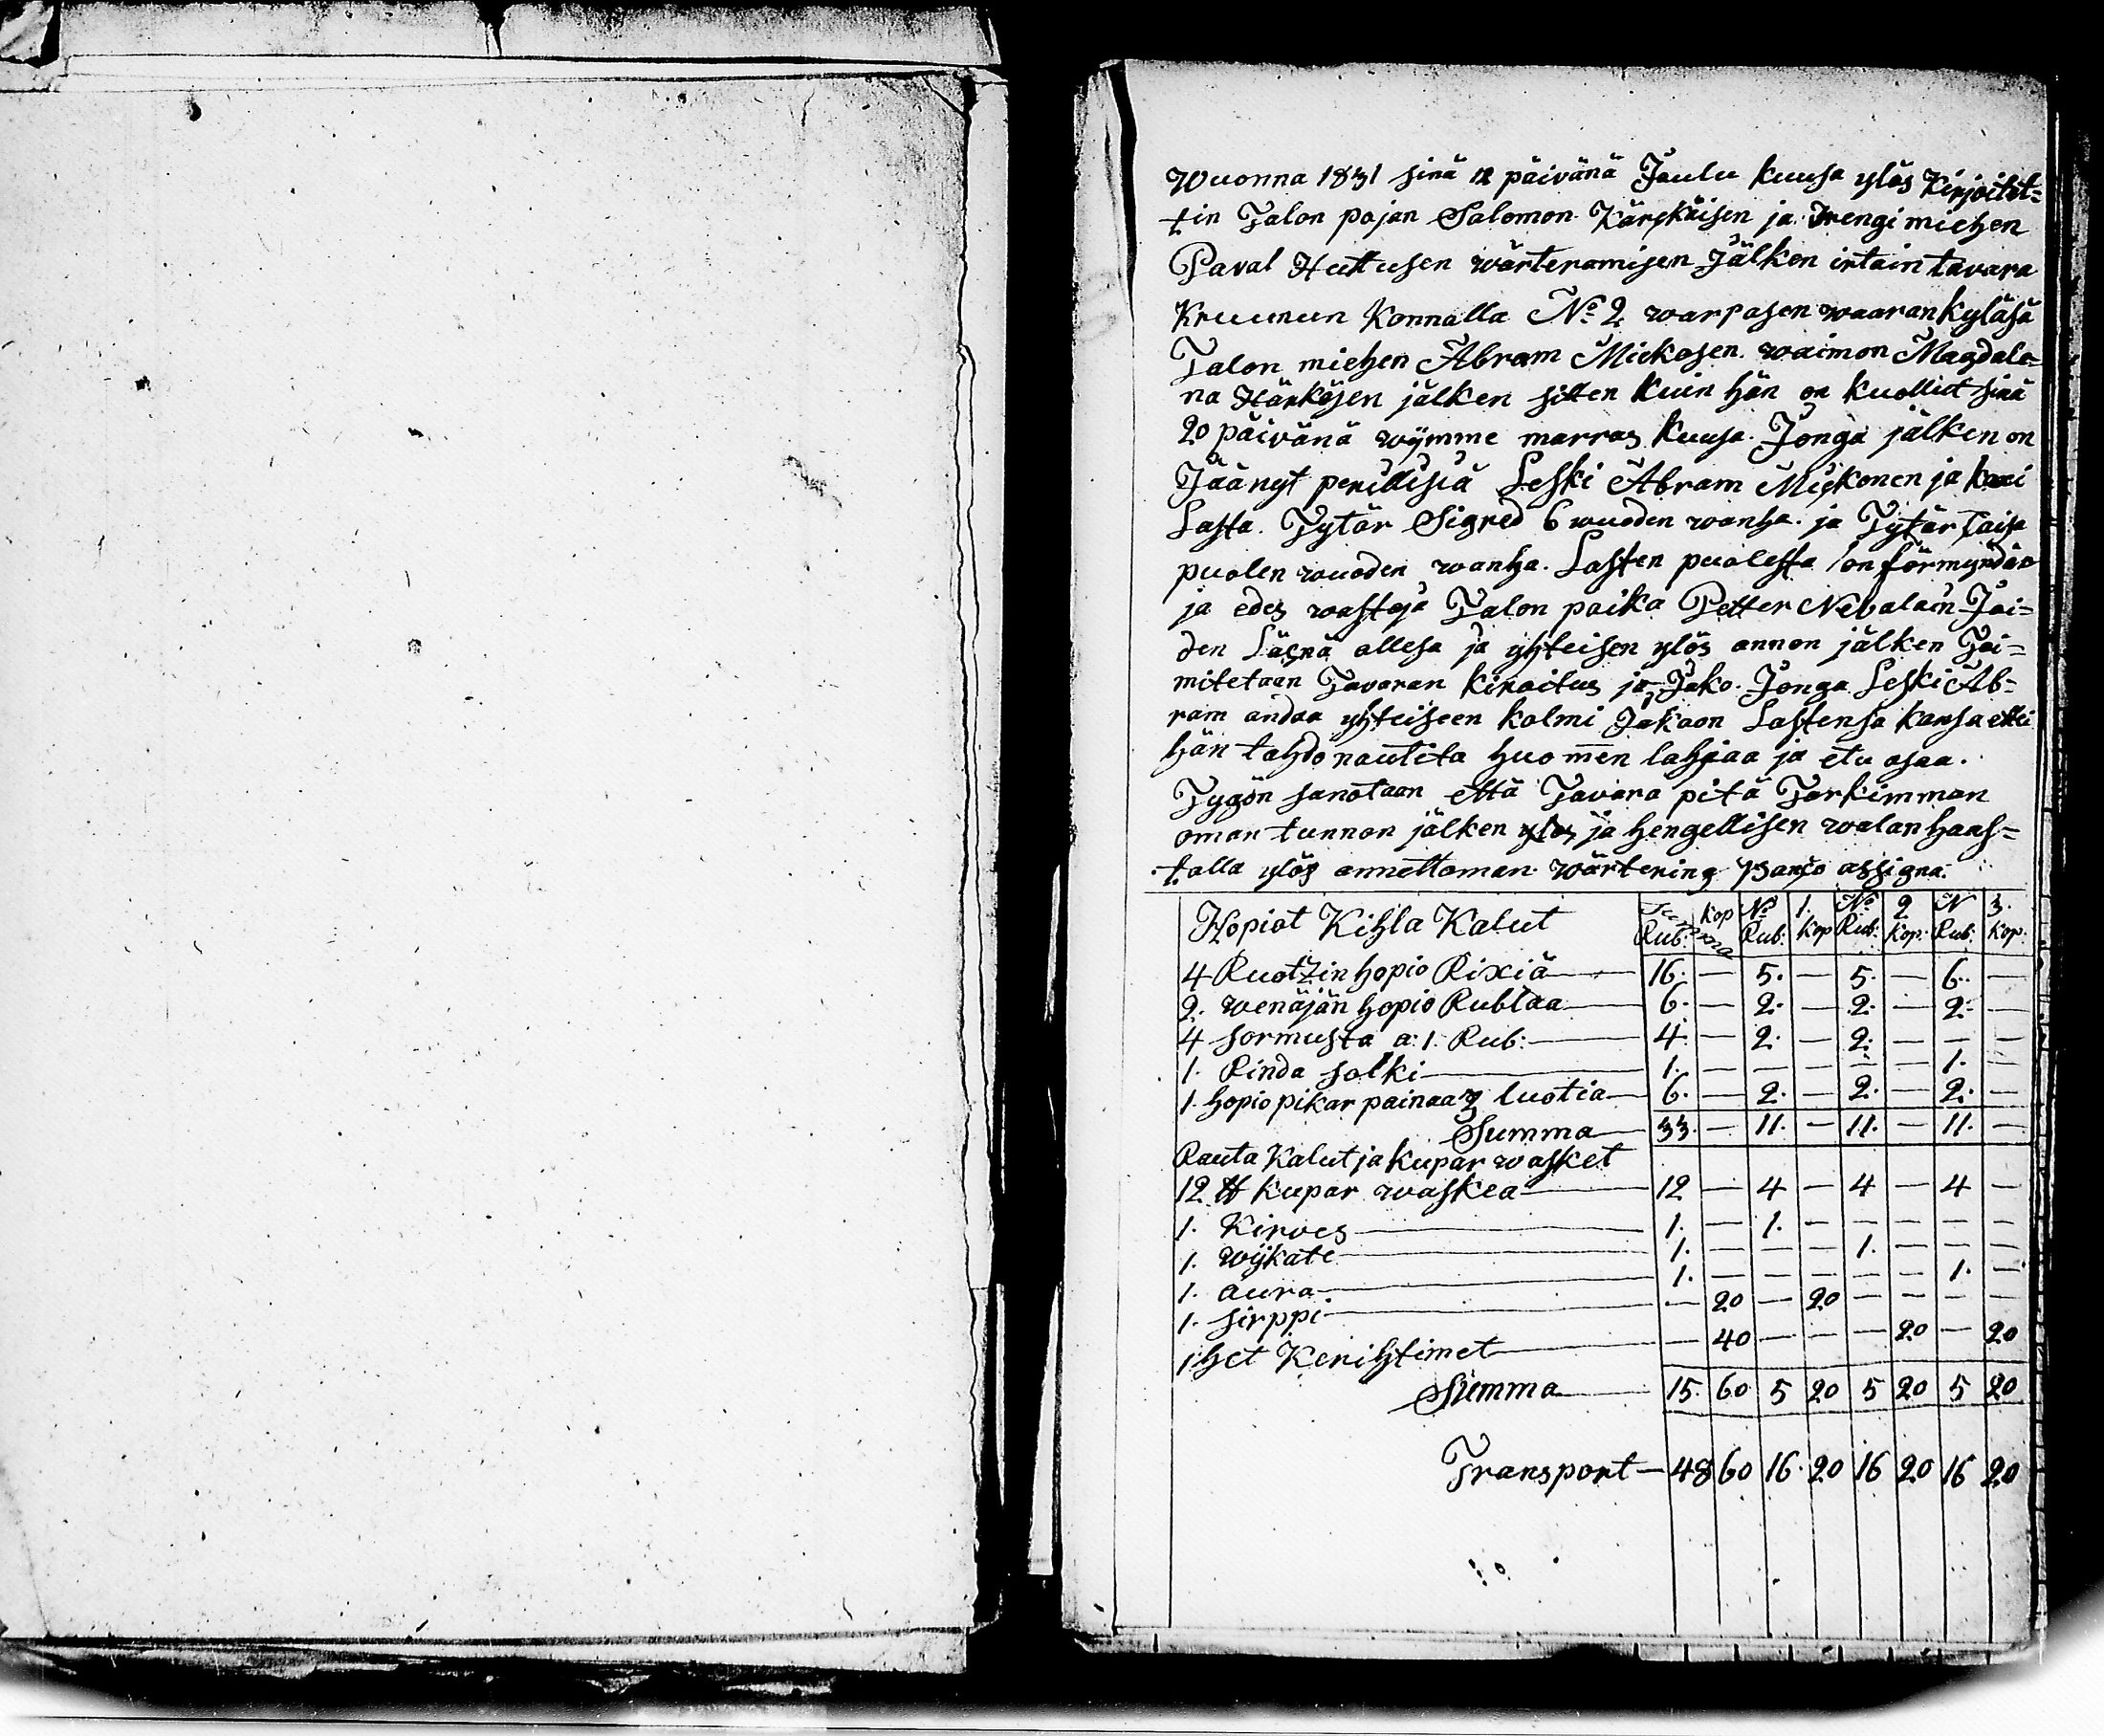 Wuonna 1831 sinä 12 päivänä Joulu kuusa ylös kirjoitet=
tin Talon pojan Salomon Kärgkäisen ja Trengi miehen
Paval Huttusen wärteramisen Jälken irtain tavara
Kruunun Konnalla No 2 warpasen waaran kyläsä
Talon miehen Abram Miekosen waimon Magdale=
na Härkösen jälken sitten kuin hän on kuollut sinä
20 päivänä wijmme marras kuusa. Jonga jälken on
Jäänyt perillisiä Leski Abram Miekonen ja kaxi
Lasta. Tytär Sigred 6 wuoden wanha. ja Tytär Caisa
puolen wuoden wanha. Lasten puolesta on förmyndär
ja edes wastaja Talon poika Petter Nevalain Joi=
den Läsnä ollesa ja yhteisen ylös annon jälken Toi=
mitetaan Tavaran kiroitus ja Jako. Jonga Leski Ab=
ram andaa yhteiseen kolmi Jakoon Lastensa kansa ettei
hän tahdo nautita huomen lahjaa ja etu osaa.
Tygön sanotaan että Tavara pitä Tarkimman
oman tunnon jälken ja hengellisen walan haas=
talla ylös annettaman wärtering Banco assigna.
Hopiat Kihla Kalut Rub: kop No 1. Rub: kop No 2 Rub: kop: N 3. Rub: kop:
4 Ruotzin hopio Rixiä — 16. — 5. — 5. — 6. —
2. wenäjän hopio Rublaa — 6. — 2. — 2. — 2. —
4 sormusta a: 1. Rub: — 4. — 2. — 2. — — —
1. Rinda solki — 1. — — — — — 1. —
1. hopio pikar painaa 3 luotia — 6. — 2. — 2. — 2. —
Summa — 33. — 11. — 11. — 11. —
Rauta Kalut ja kupar wasket
12 ℔ kupar waskea — 12 — 4 — 4 — 4 —
1. Kirves — 1. — 1. — — — — —
1. wijkate — 1. — — — 1. — — —
1. aura — 1. — — — — — 1. —
1. sirppi — — 20 — 20 — — — —
1. het Kerihtimet — — 40 — — — 20 — 20
Summa — 15. 60 5 20 5 20 5 20
Transport — 48 60 16. 20 16 20 16 20